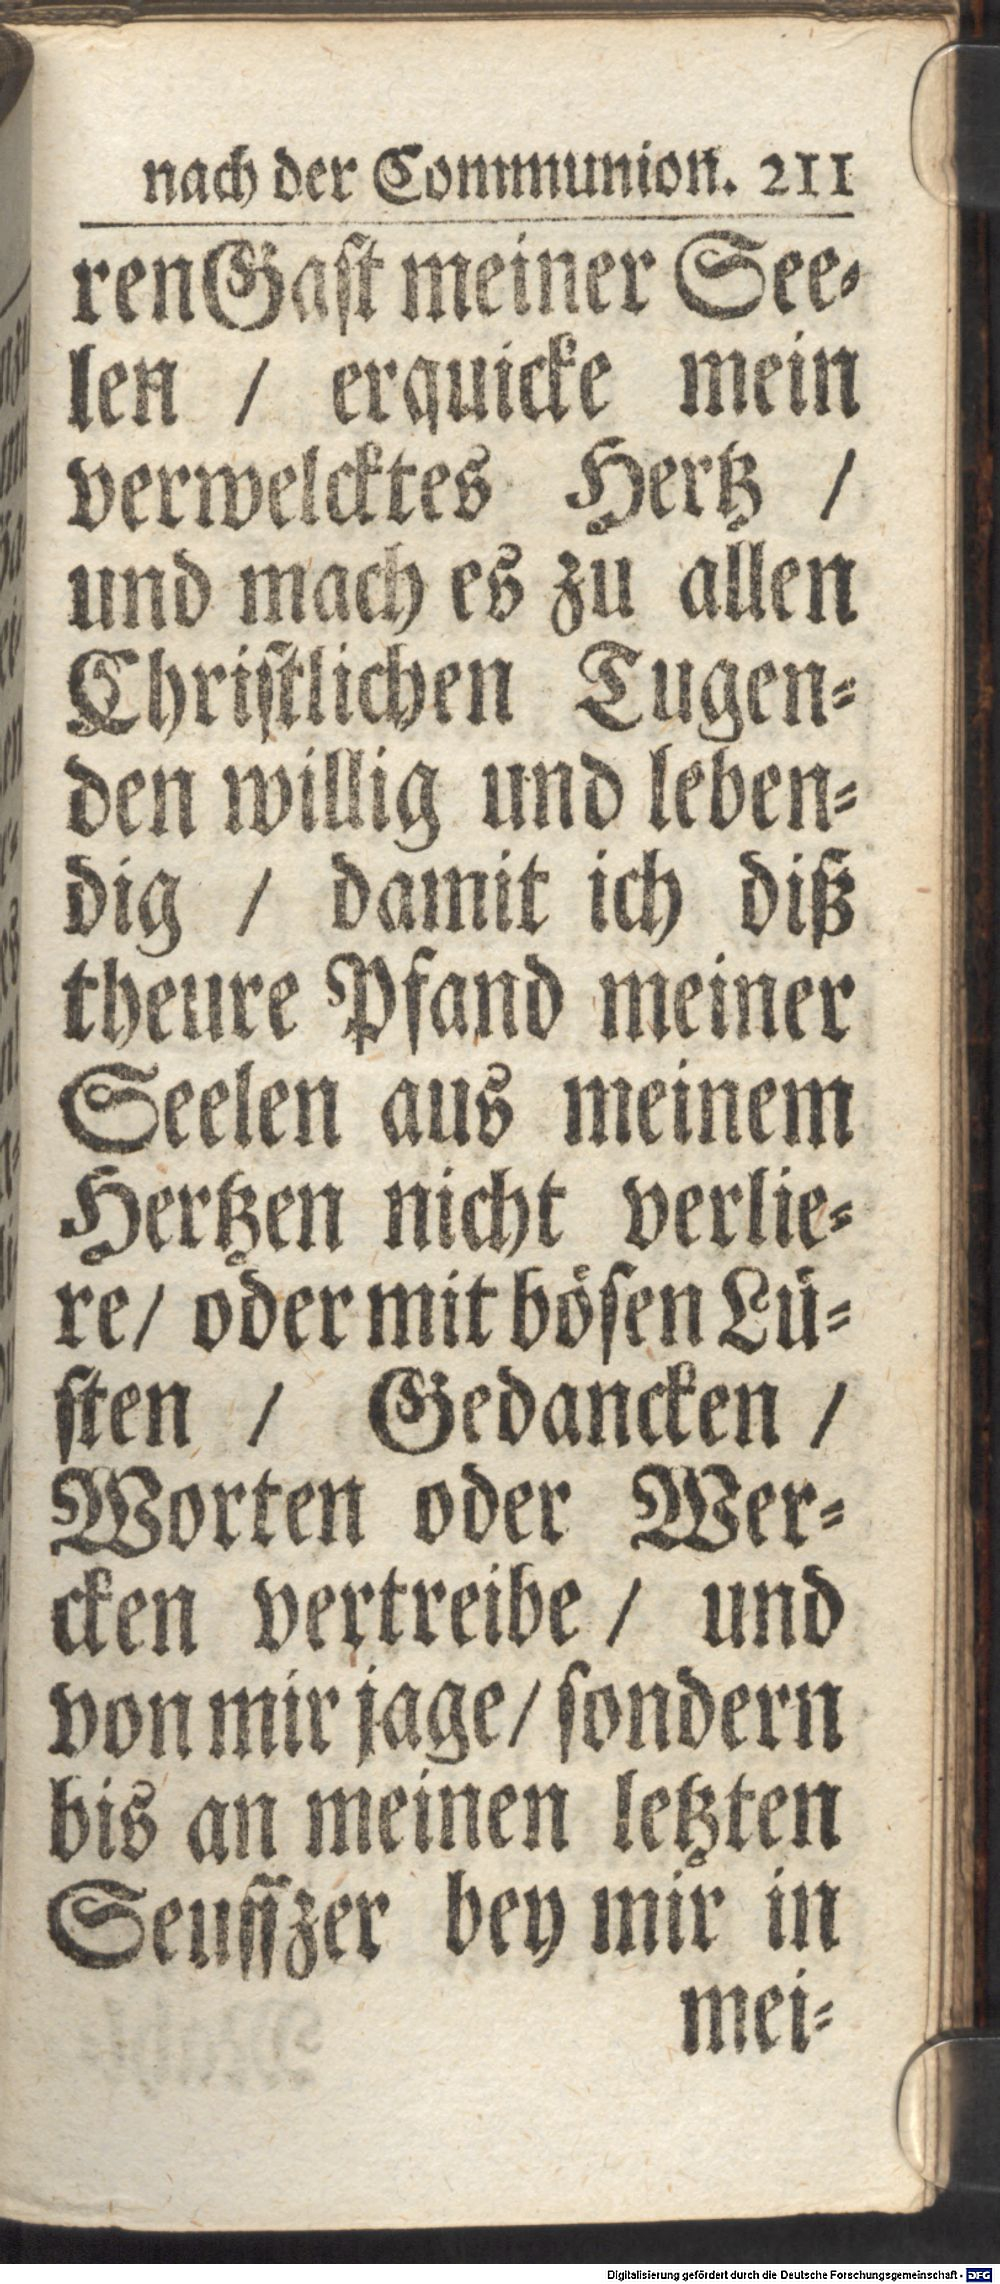 nach der Communion. 211
ren Gaſt meiner See-
len / erquicke mein
verwelcktes Hertz /
und mach es zu allen
Chriſtlichen Tugen-
den willig und leben-
dig / damit ich diß
theure Pfand meiner
Seelen aus meinem
Hertzen nicht verlie-
re/ oder mit böſen Lü-
ſten / Gedancken /
Worten oder Wer-
cken vertreibe / und
von mir jage/ ſondern
bis an meinen letzten
Seuffzer bey mir in
mei-
Digitalisierung gefördert durch die Deutsche Forschungsgemeinschaft - DFG